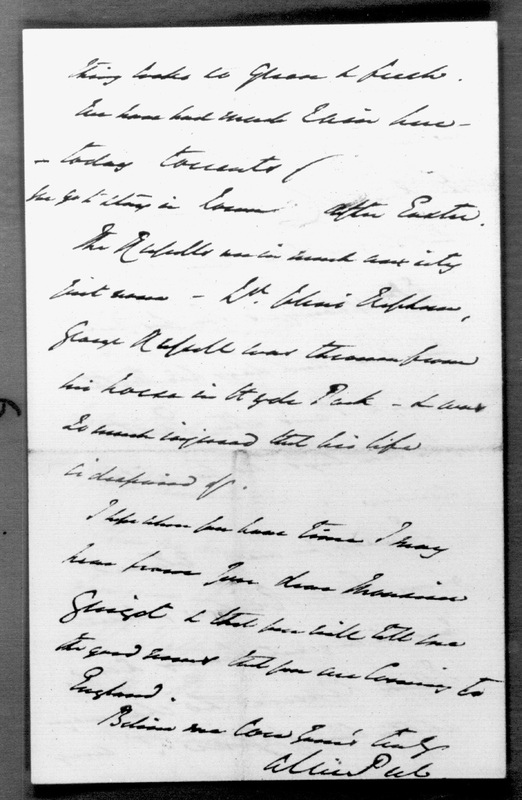 thing looks so green & fresh.
We have had much rain here -
- today torrents!
We go to stay in Town after Easter.
The Russells are in much anxiety
just now - Ld. John's nephew,
George Russell was thrown from
his horse in Hyde Park - & was
so much injured that his life
is despaired of.
I hope when you have time I may
hear from you dear Monsieur
Guizot & that you will tell me
the good news that you are coming to
England.
Believe me ever yours truly
Alice Peel